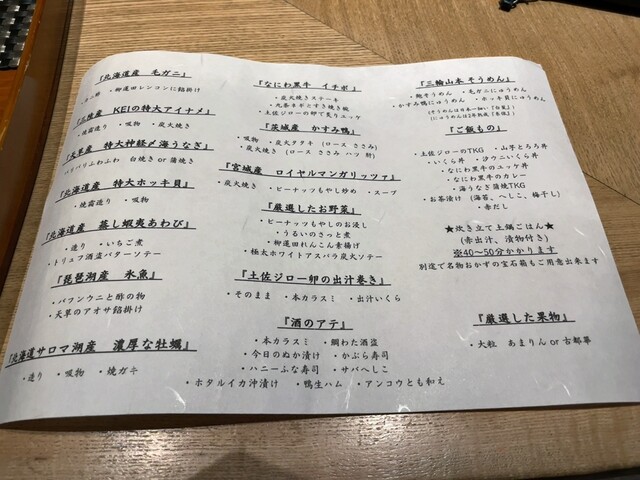 『北海道産 毛ガニ』
・柳蓮田レンコンに餡掛け
KEIの特大アイナメ』
焼霜造り ・吸物 ・炭火焼き
『天草産 特大神経〆海うなぎ』
パリパリふわふわ 白焼き or 蒲焼き
『北海道産 特大ホッキ貝』
・焼霜造り ・吸物
『北海道産 蒸し蝦夷あわび』
・造り ・いちご煮
・トリュフ酒盗バターソテー
『琵琶湖産 氷魚』
・バフンウニと酢の物
・天草のアオサ餡掛け
『北海道サロマ湖産 濃厚な牡蠣』
・造り ・吸物 ・焼ガキ
『なにわ黒牛 イチボ』
・炭火焼きステーキ
・九条ネギとすき焼き椀
・土佐ジローの卵で炙りユッケ
『茨城産 かすみ鴨』
・吸物 ・炭火タタキ (ロース ささみ)
・炭火焼き (ロース ささみ ハツ 肝)
『宮城産 ロイヤルマンガリッツァ』
・炭火焼き ・ピーナッツもやし炒め ・スープ
『厳選したお野菜』
・ピーナッツもやしのお浸し
・うるいのさっと煮
・柳蓮田れんこん素揚げ
・極太ホワイトアスパラ炭火ソテー
『土佐ジロー卵の出汁巻き』
・そのまま ・本カラスミ ・出汁いくら
『酒のアテ』
・本カラスミ ・鯛わた酒盗
・今日のぬか漬け ・かぶら寿司
・ハニーふな寿司 ・サバへしこ
・ホタルイカ沖漬け ・鴨生ハム ・アンコウとも和え
『三輪山本 そうめん』
・鮑そうめん ・毛ガニにゅうめん
・かすみ鴨にゅうめん ・ホッキ貝にゅうめん
(そうめんは日本一細い『白髪』)
『ご飯もの』
・土佐ジローのTKG ・山芋とろろ丼
・いくら丼 ・汐ウニいくら丼
・なにわ黒牛のユッケ丼
・なにわ黒牛のカレー
・海うなぎ蒲焼TKG
・お茶漬け (海苔、へしこ、梅干し)
・赤だし
★炊き立て土鍋ごはん★
(赤出汁、漬物付き)
※40〜50分かかります
別途で名物おかずの宝石箱もご用意出来ます
『厳選した果物』
・大粒 あまりん or 古都華